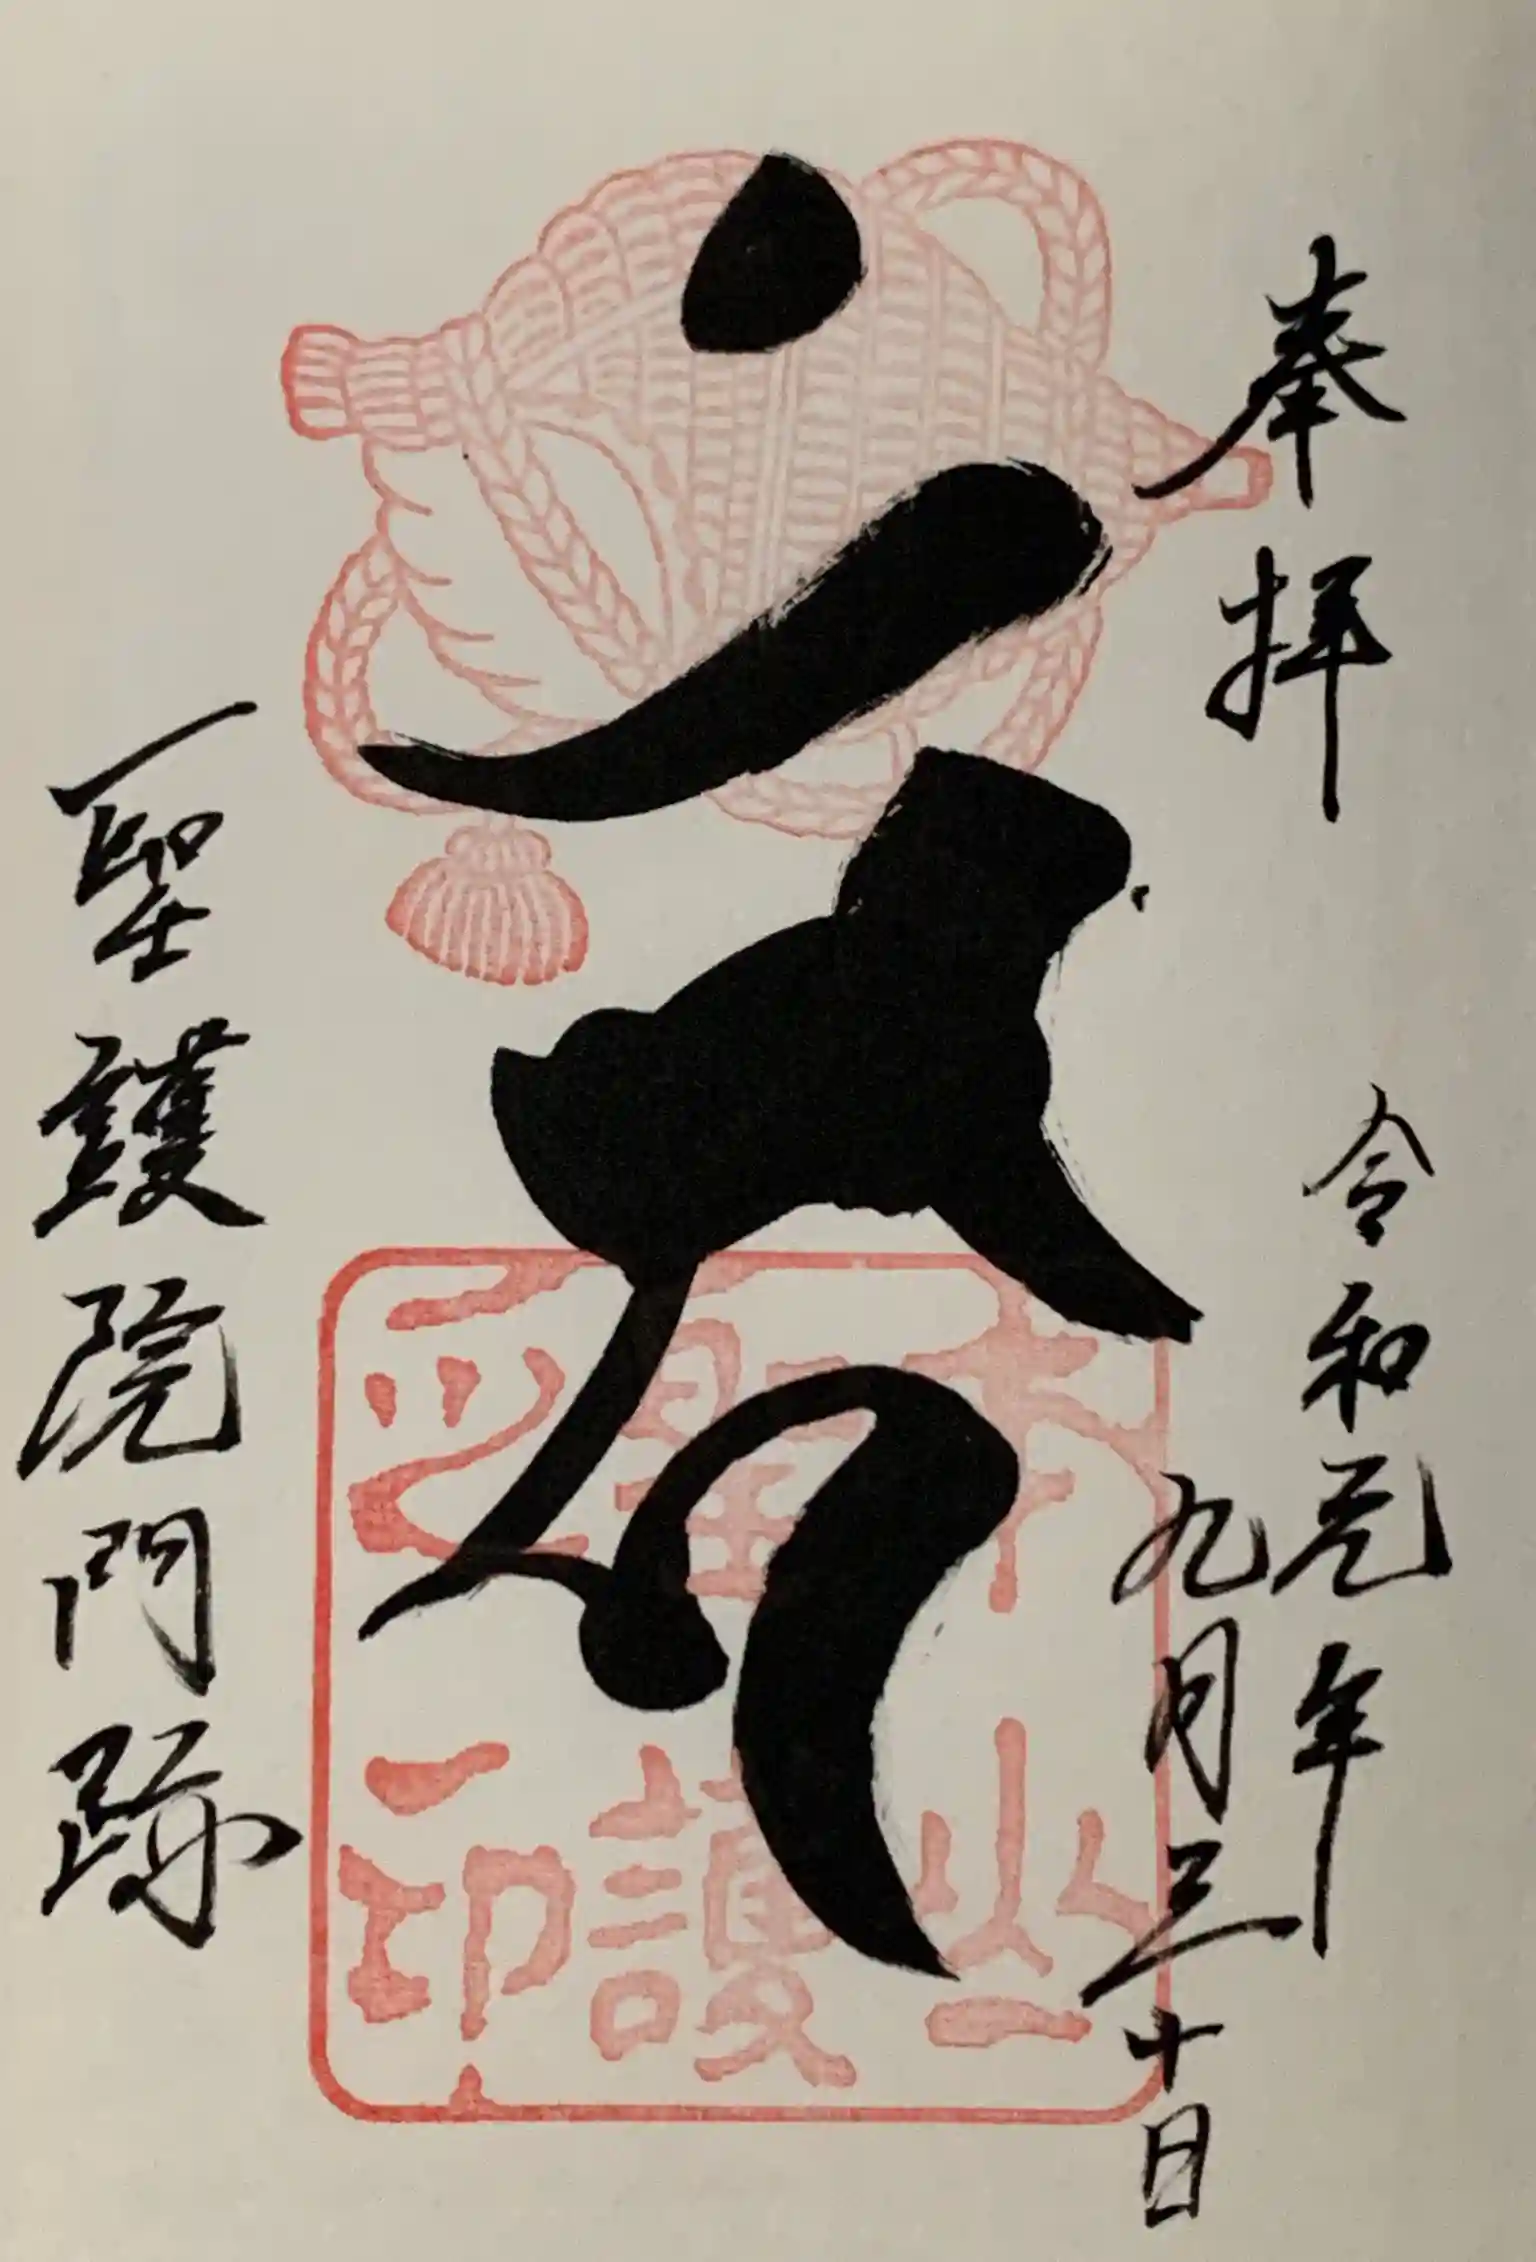 奉拝
令和元年
九月三十日
本山
聖護
印
聖護院門跡